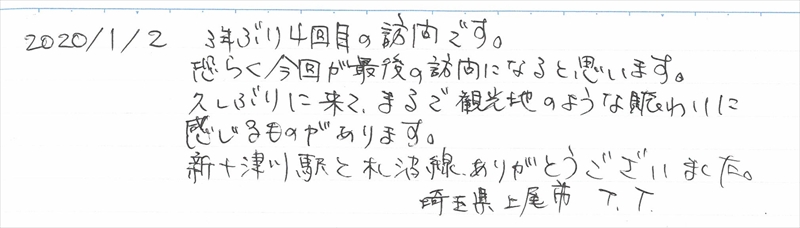 2020/1/2 3年ぶり4回目の訪問です。
恐らく今回が最後の訪問になると思います。
久しぶりに来て、まるで観光地のような賑わいに
感じるものがあります。
新十津川駅と札沼線、ありがとうございました。
埼玉県上尾市 T.T.